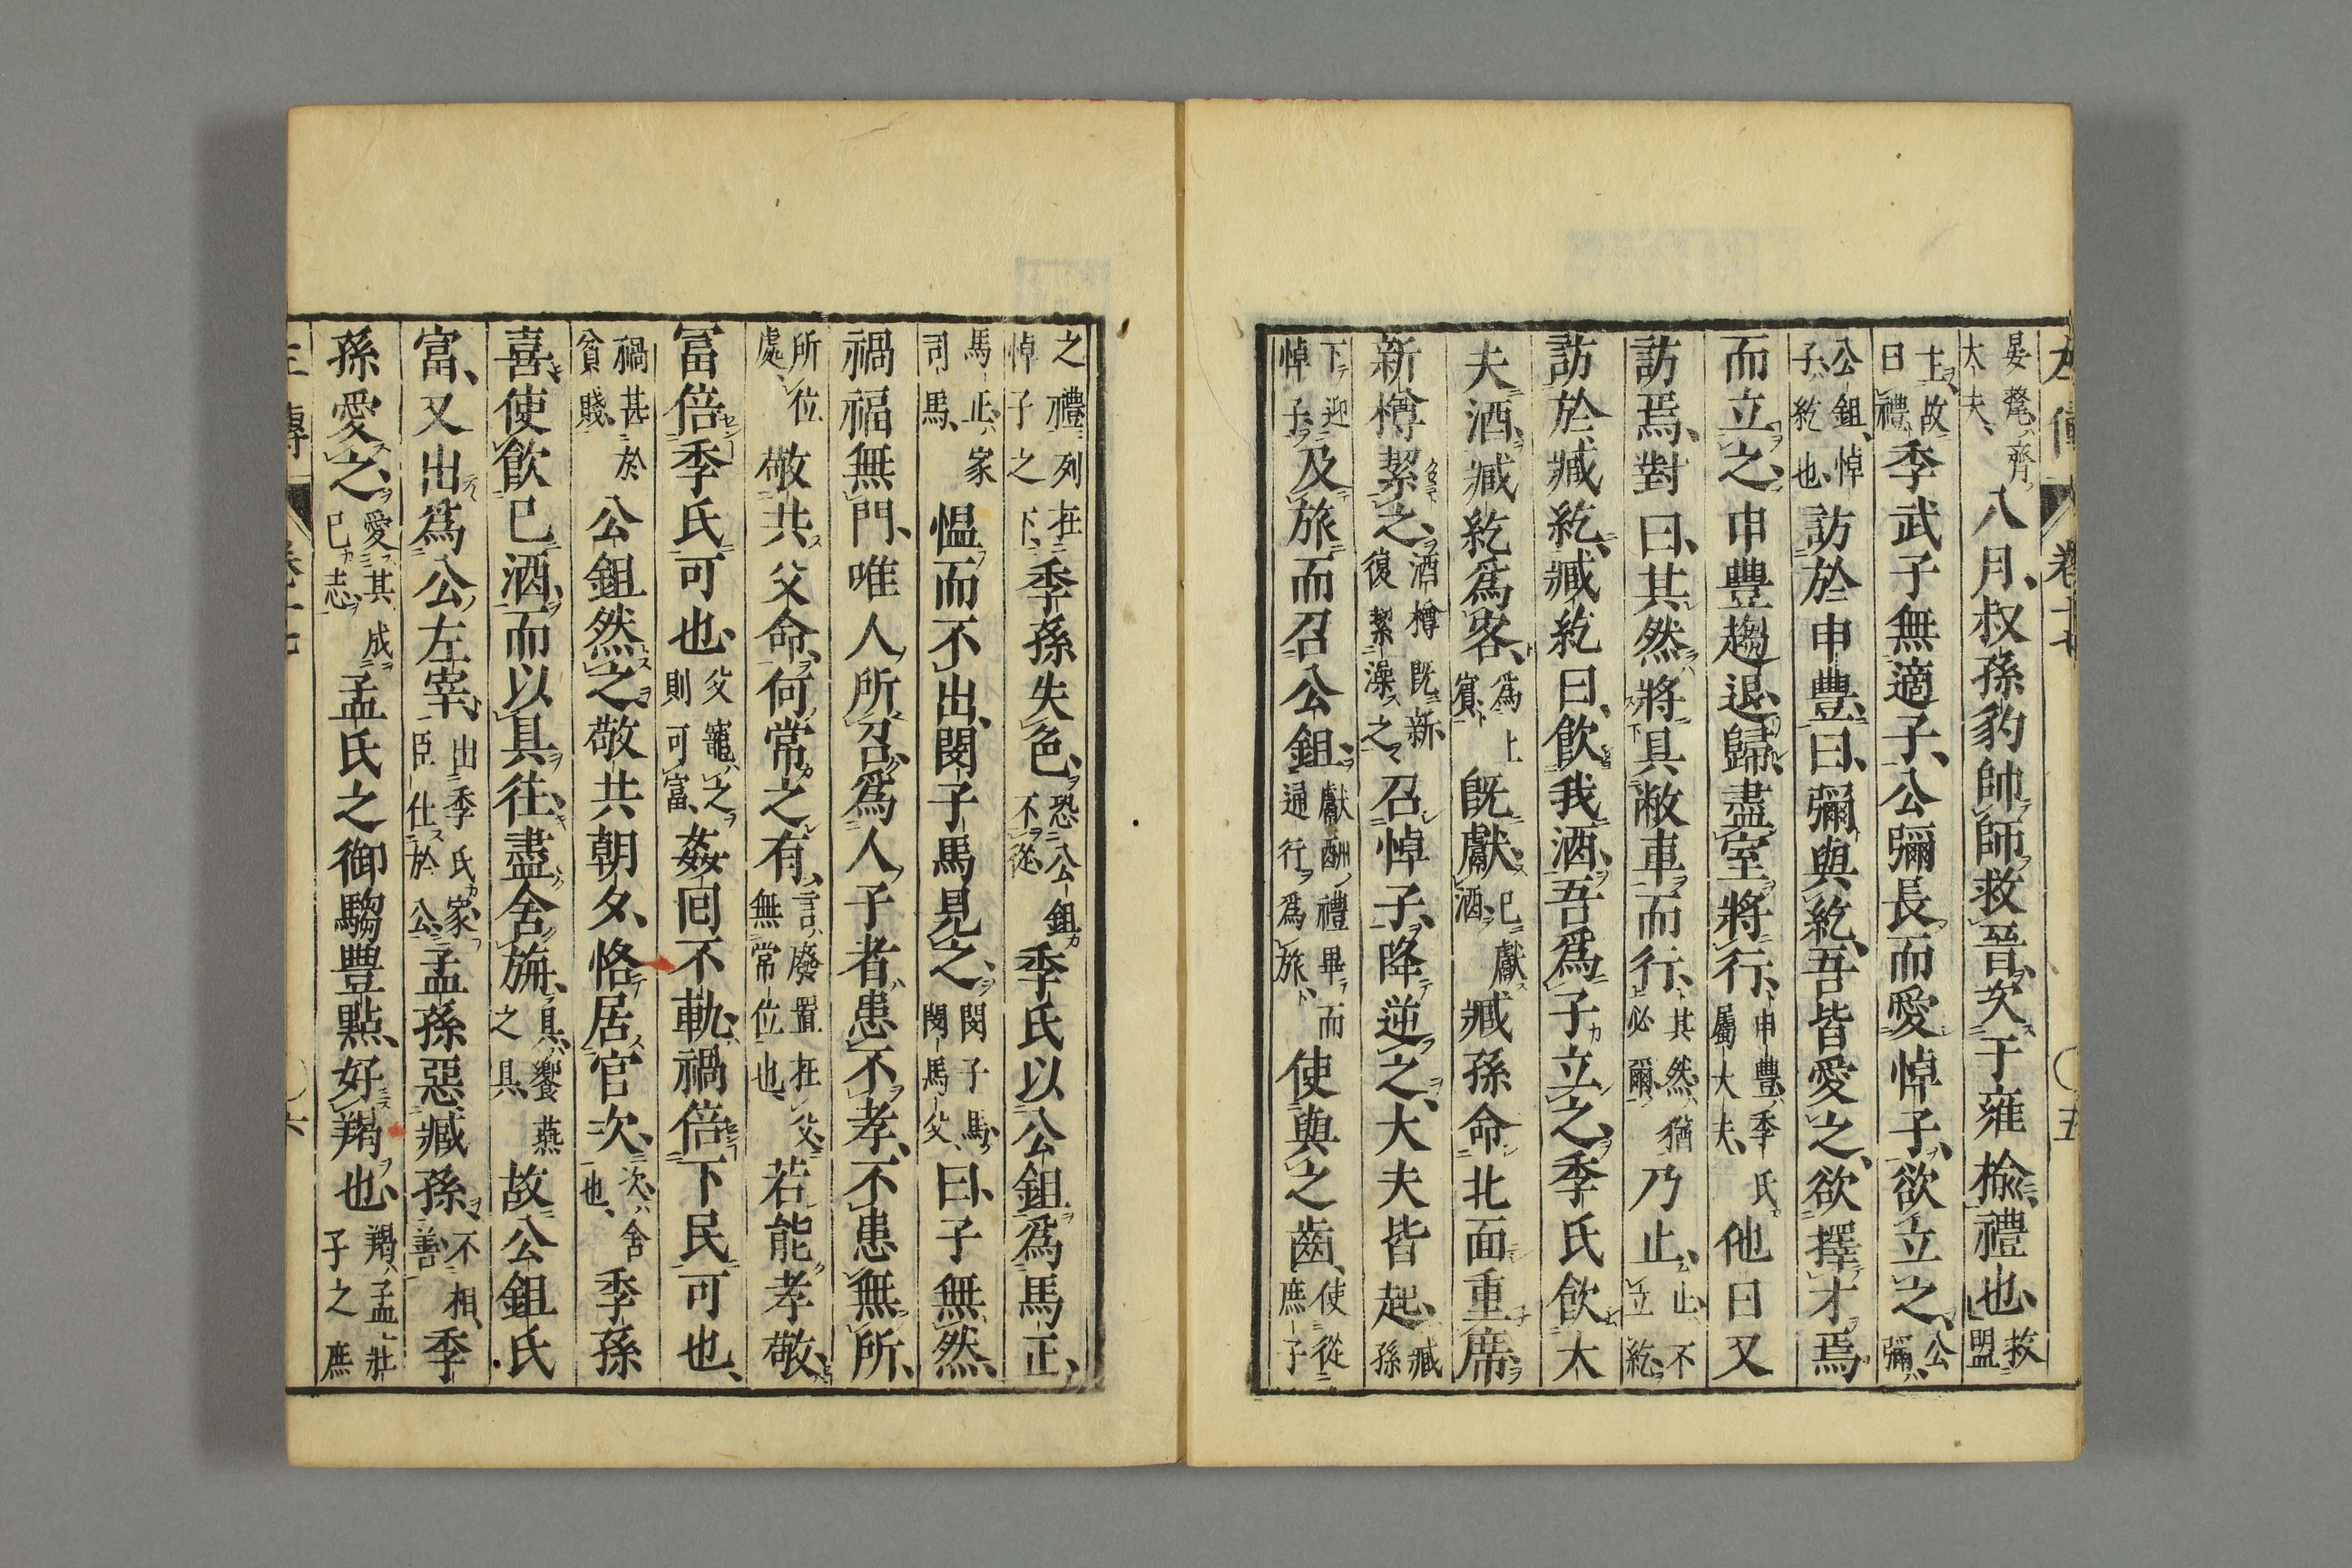 左傳 卷十七 〇五
晏氂齊大夫八月叔孫豹帥師救晉次于雍榆禮也救盟
主故曰禮季武子無適子公彌長而愛悼子欲立之公彌
公鉏悼子紇也訪於申豐曰彌與紇吾皆愛之欲擇才焉
而立之申豐趨退歸盡室將行申豐季氏屬大夫他日又
訪焉對曰其然將具敝車而行其然猶必爾乃止止不立紇
訪於臧紇臧紇曰飲我酒吾為子立之季氏飲大
夫酒臧紇為客為上賓既獻已獻酒臧孫命北面重席
新樽絜之酒樽既新復絜澡之召悼子降逆之大夫皆起臧孫
下迎悼子及旅而召公鉏獻酬禮畢而通行為旅使與之齒使從庶子
之禮列在悼子之下季孫失色恐公鉏不從季氏以公鉏為馬正
馬正家司馬慍而不出閔子馬見之閔子馬閔馬父曰子無然
禍福無門唯人所召為人子者患不孝不患無所
所位處敬共父命何常之有言廢置在父無常位也若能孝敬
富倍季氏可也父寵之則可富姦回不軌禍倍下民可也
禍甚於貧賤公鉏然之敬共朝夕恪居官次次舍也季孫
喜使飲已酒而以具往盡舍旃具饗燕之具故公鉏氏
富又出為公左宰出季氏家臣仕於公孟孫惡臧孫不相善季
孫愛之愛其成已志孟氏之御騶豐點好羯也羯孟莊子之庶
左傳 卷十七 〇六